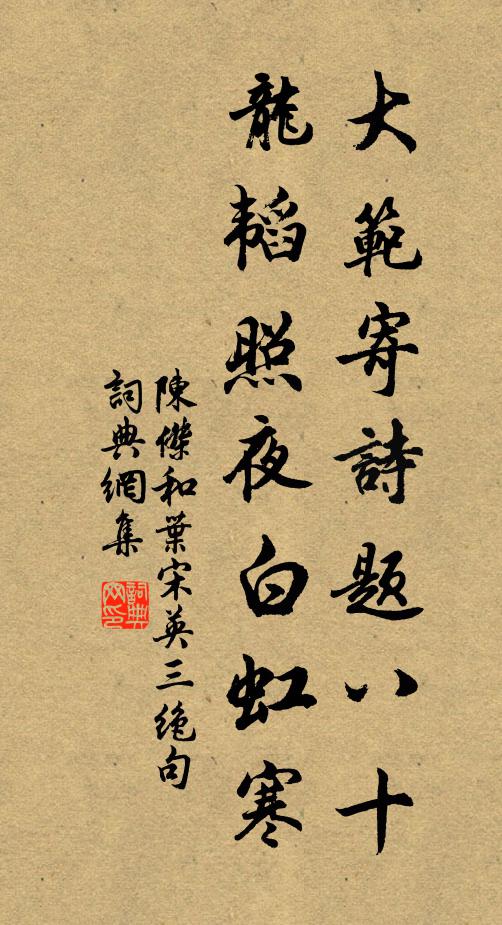 大範寄詩題八十
龍韜照夜白虹寒
陳傑和葉宋英三絶句
詞典網集
詞典网印